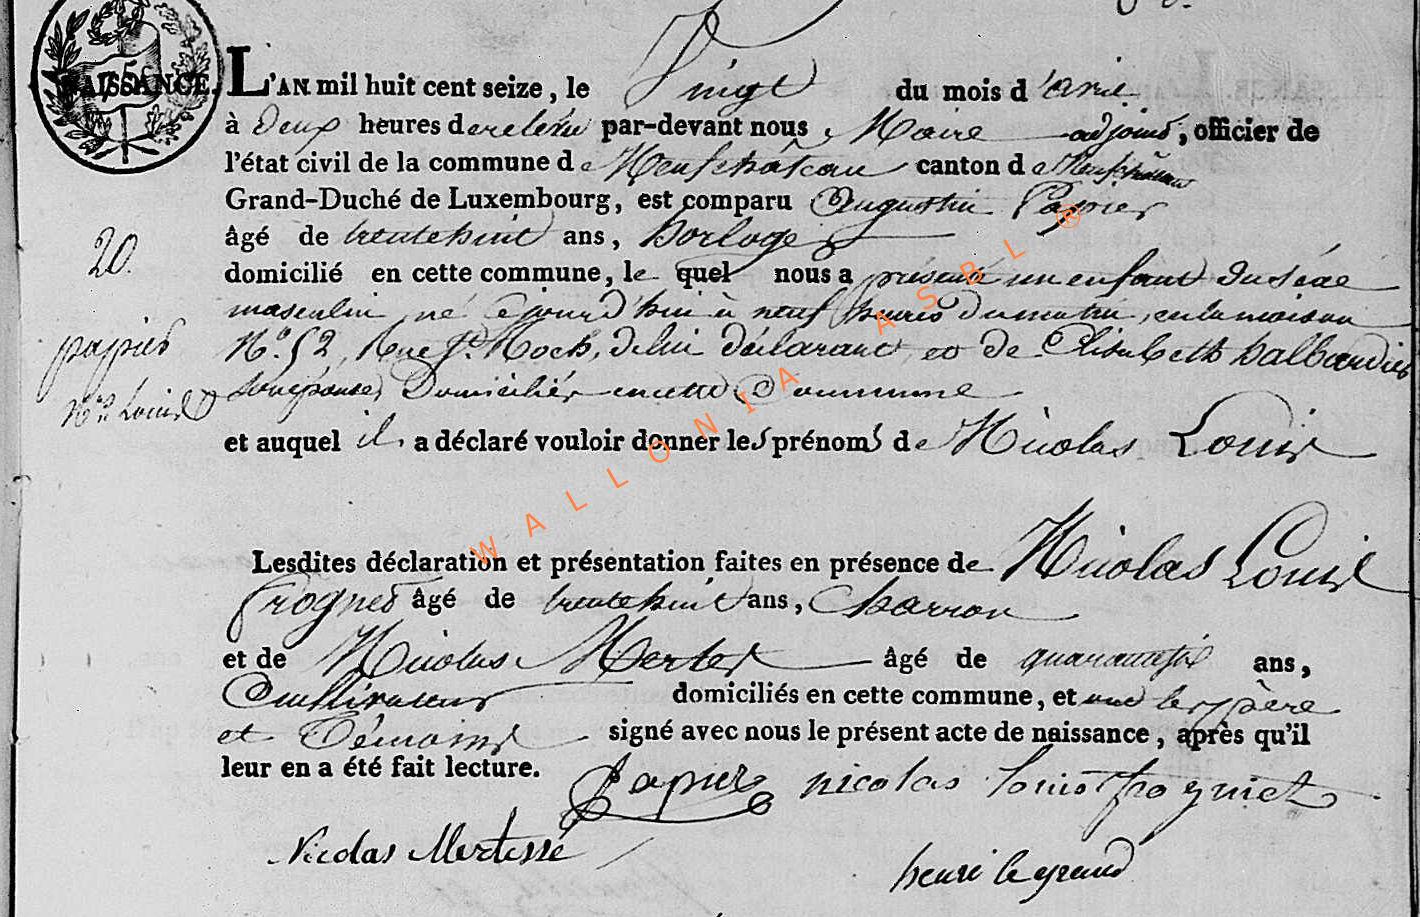 NAISSANCE. L'AN mil huit cent seize, le Vingt du mois d'avril
à Deux heures de relevée par-devant nous Maire adjoint, officier de
l'état civil de la commune de Neufchâteau canton de Neufchâteau
Grand-Duché de Luxembourg, est comparu Augustin Papier
âgé de trentehuit ans, horloger
domicilié en cette commune, le quel nous a présenté un enfant du sexe
masculin, né cejourd'hui à neuf heures du matin, en la maison
N.º 52, Rue St. Roch, de lui déclarant et de Elisabeth
son épouse, Domiciliés en cette Commune
20.
papier
Nas Louis
et auquel il a déclaré vouloir donner les prénoms de Nicolas Louis
Lesdites déclaration et présentation faites en présence de Nicolas Louis
Frognet âgé de trentehuit ans, Charron
et de Nicolas Mertes âgé de quarantesix ans,
Cultivateur domiciliés en cette commune, et ont les père
et Témoins signé avec nous le présent acte de naissance, après qu'il
leur en a été fait lecture.
Papier nicolas louis frogniet
Nicolas Mertesse
henri legrand
WALLONIA ASBL ®